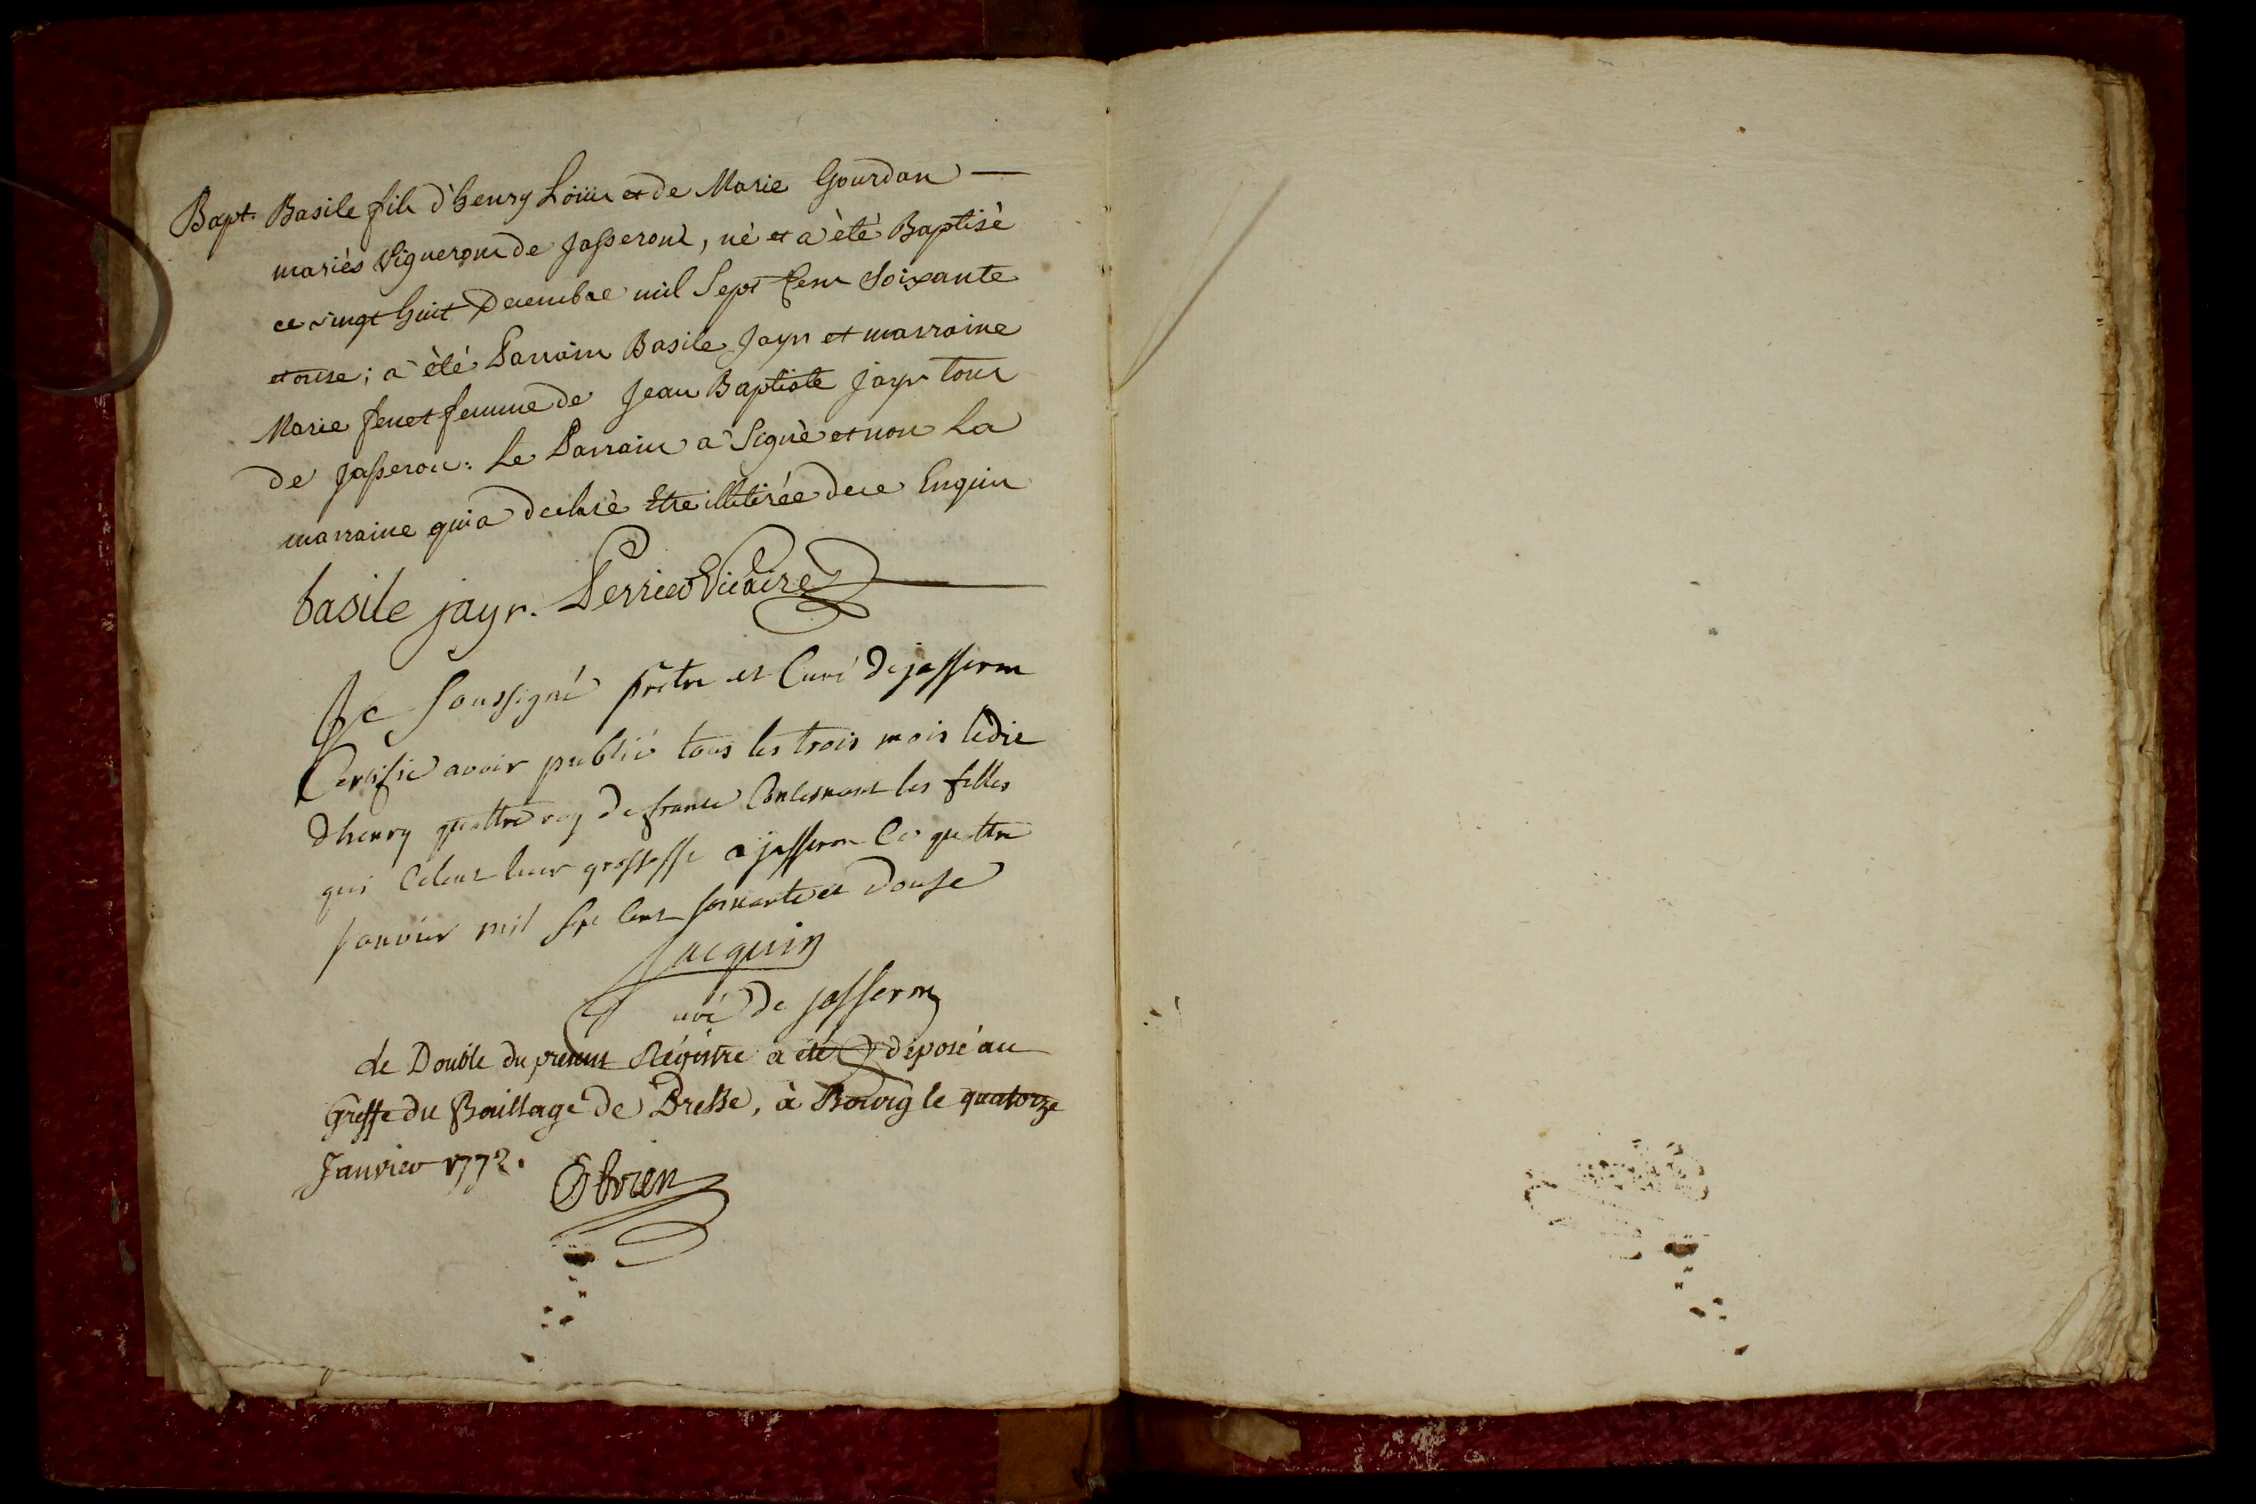 Bapt. Basile fils d'henry Loüis et de Marie Gourdan —
mariés Vignerons de Jasseront, né et a été Baptisé
ce vingt huit Decembre mil Sept Cent Soixante
et onse; a été Parrain Basile Jayr et marraine
Marie fenet femme de Jean Baptiste Jayr tous
de Jasseron. Le Parrain a Signé et non La
marraine qui a declaré Etre illitirée de ce Enquis
basile jayr. Perrier Vicaire
Je Soussigné prêtre et Curé de jasseron
Certifie avoir publié tous les trois mois l'edit
d'henry quattre roy de france Concernant les filles
qui Celent leur grossesse a jasseron Ce quattre
janvier mil Sept Cent soixante et douse
Jacquin
Curé de jasseron
Le Double du présent Régistre a été déposé au
Greffe du Bailliage de Bresse, à Bourg le quatorze
Janvier 1772.